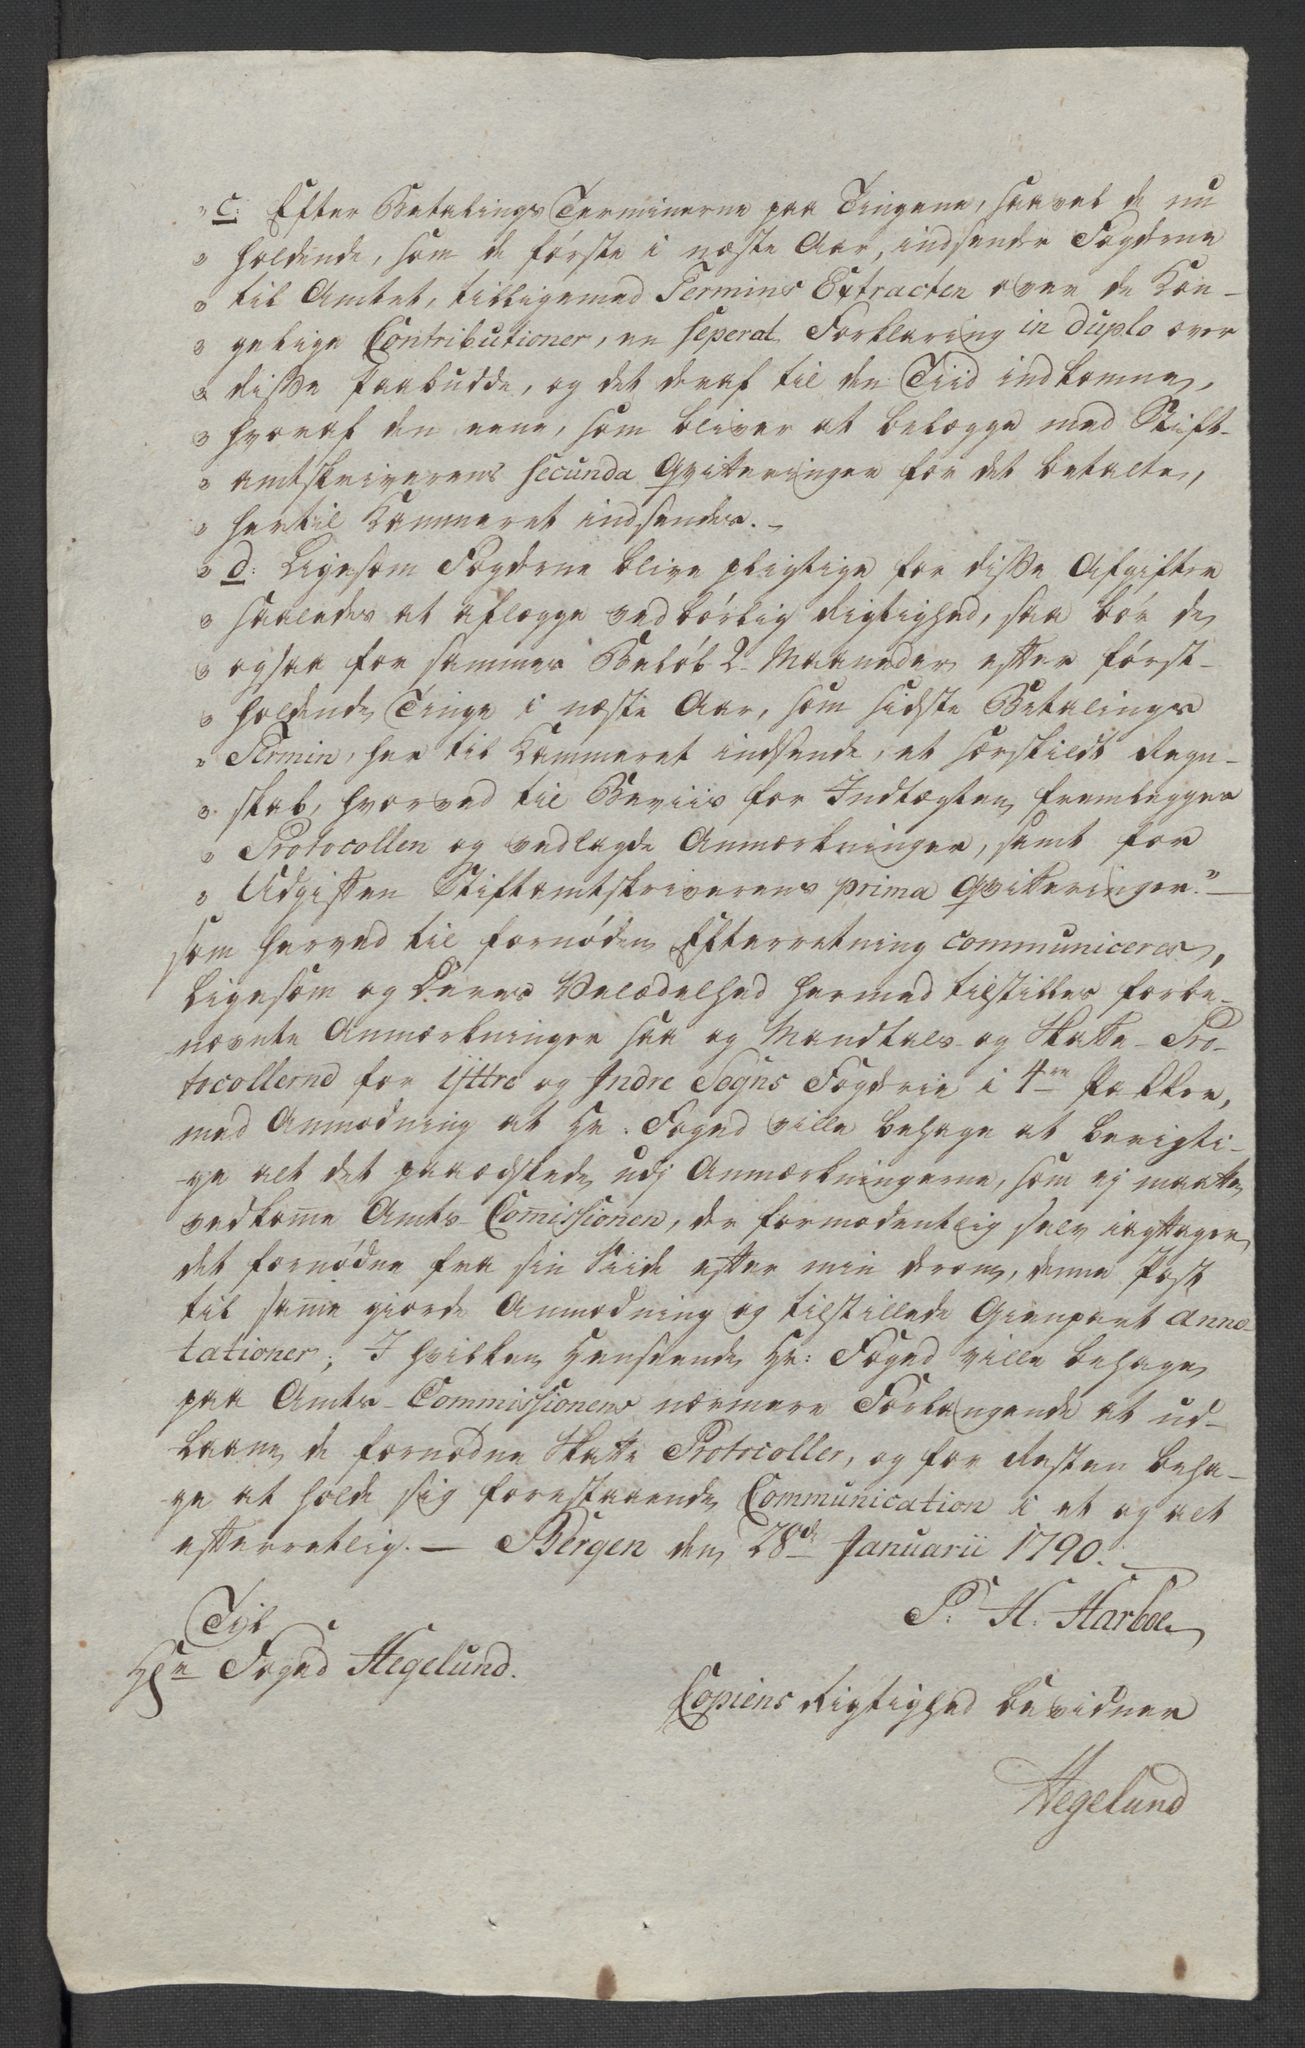 " c: Efter Betalings Terminerne paa Tingene, saavel de nu
" holdende, som de første i næste Aar, indsende Fogderne
" til Amtet, tilligemed Termins Extracten over de Kon-
" gelige Contributioner, en seperat Forklaring in duplo over
" disse Paabudde, og det deraf til den Tiid indkomne,
" hvoraf den eene, som bliver at belægge med Stift-
" amtskriverens secunda Qvitteringer for det betalte,
" hertil Kammeret indsendes. –
" d: Ligesom Fogderne blive pligtige for disse Afgifter
" saaledes at aflægge vedbørlig Rigtighed, saa bør de
" ogsaa for sammes Beløb 2 Maaneder efter først-
" holdende Tinge i næste Aar, som sidste Betalings
" Termin, her til Kammeret indsende, et særskildt Regn-
" skab, hvorved til Beviis for Indtægten fremlegges
" Protocollen og vedlagde Anmærkninger, samt for
" Udgiften Stiftamtskriverens prima Qvitteringer." –
som herved til fornøden Efterretning communiceres,
Ligesom og Deres Velædelhed hermed tilstilles forbe-
nævnte Anmærkninger saa og Mandtals- og Skatte-Pro-
tocollerne for Ÿttre og Indre Sogns Fogderie i 4re Pakker,
med Anmodning at Hr. Foged ville behage at berigti-
ge alt det paaædskede udj Anmærkningerne, som ej maatte
vedkom̄e Amts-Com̄issionen, der formodentlig selv iagttager
det fornødne fra sin Siide efter min derom, denne Post
til sam̄e giorde Anmodning og tilstillede Gienpart anno-
tationer; I hvilken Henseende Hr: Foged ville behage
paa Amts-Commissionens nærmere Forlangende at ud-
laane de fornødne Skatte Protocoller, og for Resten beha-
ge at holde sig forestaaende Communication i et og alt
efterretlig. – Bergen den 28de Januarii 1790.
P. H. Harboe
Til
Hr Foged Hegelund.
Copiens Rigtighed bevidner
Hegelund